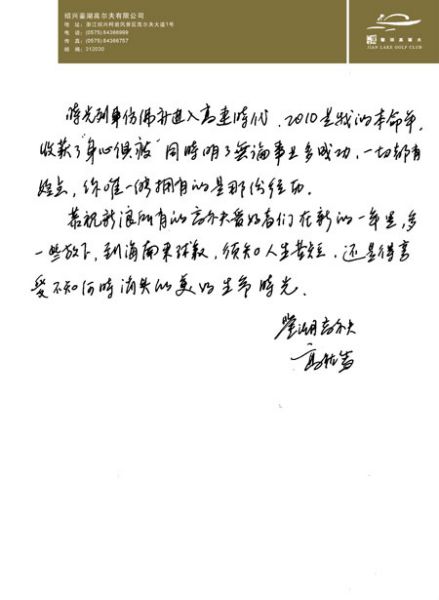 绍兴鉴湖高尔夫有限公司
地 址：浙江绍兴柯岩风景区高尔夫大道1号
电 话：(0575) 84366999
传 真：(0575) 84366757
邮 编：312030
鉴湖高尔夫
JIAN LAKE GOLF CLUB
时光列車仿佛开进入高速時代，2010是我的本命年，
收获了"身心俱疲"同時明了無論事业多成功，一切都有
始点，你唯一能拥有的是那份经历。
恭祝新浪所有的高尔夫爱好者们在新的一年里，多
一些放下，到海南来球叙，须知人生苦短，还是得享
受不知何時消失的美好生命時光。
鉴湖高尔夫